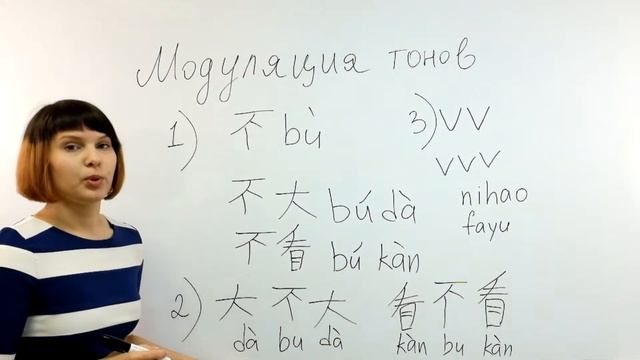 Модуляция тонов
1) 不 bù
不大 bú dà
不看 bú kàn
2) 大不大 看不看
dà bu dà kàn bu kàn
3) VV
VVV
nihao
fayu